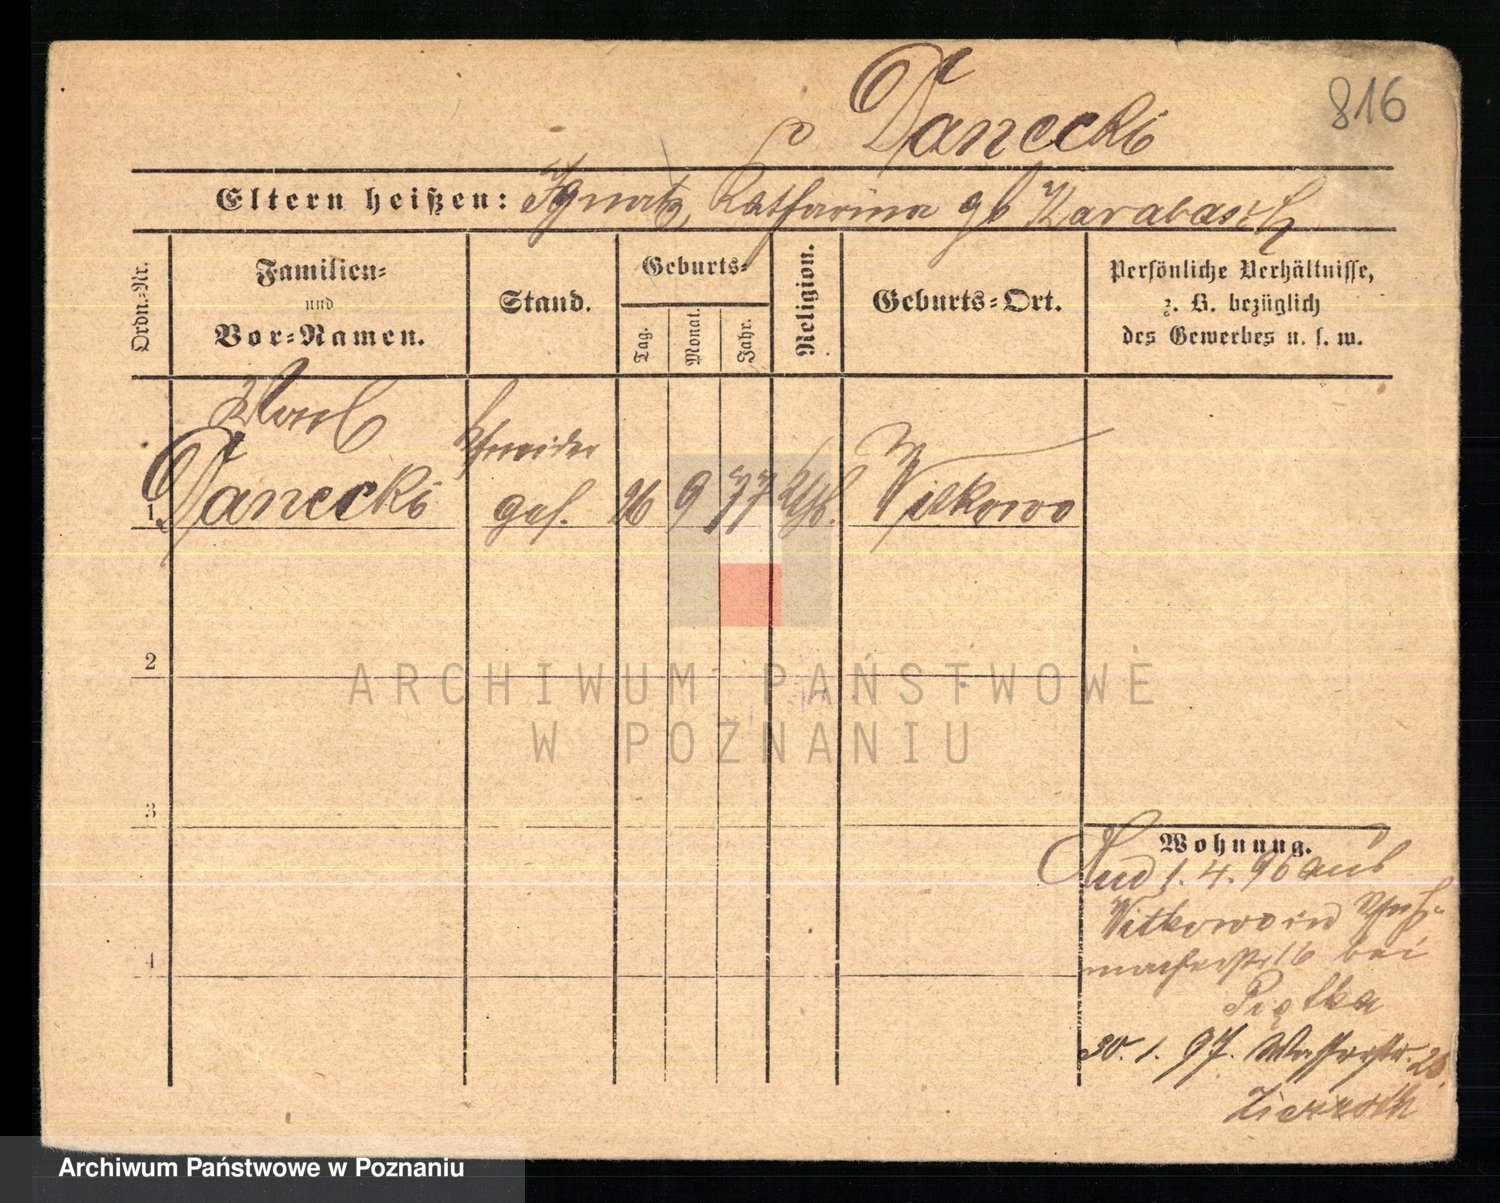 816
Danecki
Eltern heißen: Ignatz, Katharina gb Karabasch
Ordn.-Nr.
Familien- und Vor-Namen.
Stand.
Geburts-
Tag.
Monat.
Jahr.
Religion.
Geburts-Ort.
Persönliche Verhältnisse,
z. B. bezüglich
des Gewerbes u. s. w.
Karl
Danecki
Schneider
ges.
1
26 9 77 kth.
Witkowo
2
ARCHIWUM PAŃSTWOWE
W POZNANIU
3
Wohnung.
1. 4. 96 aus
Witkowo in Schuh-
macherstr 16 bei
Piątka
4
30. 1. 97. Wasserstr. 25
Archiwum Państwowe w Poznaniu